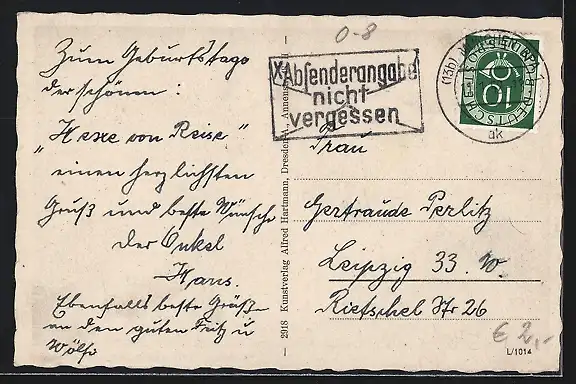 Zum Geburtstage
der schönen:
"Hexe von Reise"
einen herzlichsten
Gruß und beste Wünsche
Der Onkel
Hans.
Ebenfalls beste Grüße
an den guten Fritz u
Wölfe
2918 Kunstverlag Alfred Hartmann, Dresden-A., Annenstr.
0-8
Absenderangabe
nicht
vergessen
(13b)
ak
DEUTSCHE
10
Frau
Gertraude Perlitz
Leipzig 33. W.
Rietschel Str 26
€ 2,-
L/1014